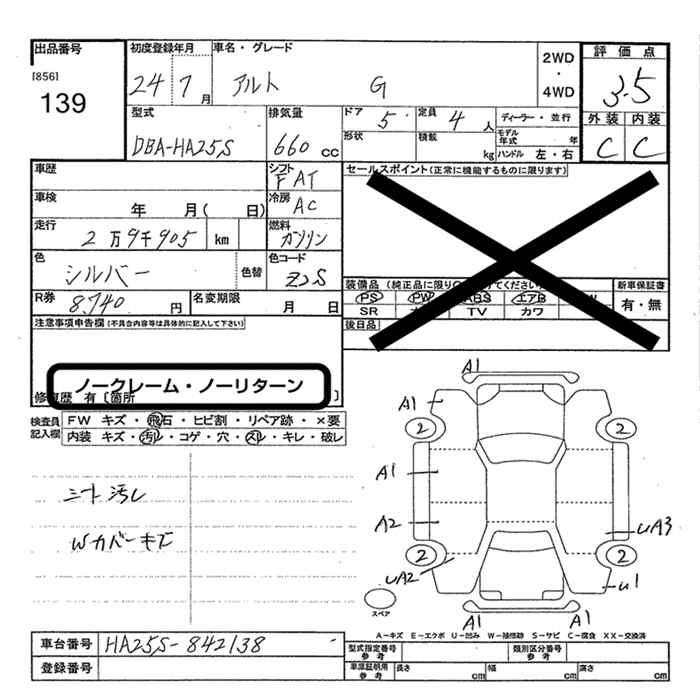 出品番号
[856]
139
初度登録年月
24 7月
車名・グレード
アルト G
2WD
・
4WD
評価点
3.5
外装 内装
C C
型式
DBA-HA25S
排気量
660cc
ドア 5
形状
定員 4人
積載 kg
ディーラー・並行
モデル年式 年
ハンドル 左・右
車歴
シフト
FAT
車検
年 月( 日)
冷房
AC
走行
2万9千905 km
燃料
ガソリン
色
シルバー
色替
色コード
Z2S
R券
8,740円
名変期限
月 日
セールスポイント(正常に機能するものに限ります)
装備品(純正品に限り てください)
PS PW ABS エアB W
SR TV カワ
新車保証書
有・無
後日品
注意事項申告欄(不具合内容等は具体的に記入して下さい)
ノークレーム・ノーリターン
修復歴 有〔箇所 〕
検査員記入欄
FW キズ・飛石・ヒビ割・リペア跡・×要
内装 キズ・汚レ・コゲ・穴・スレ・キレ・破レ
シート汚レ
Wカバーキズ
A1
A1
2 2
A1
A2
UA3
2 2
UA2
U1
A1 A1
スペア
A-キズ E-エクボ U-凹み W-補修跡 S-サビ C-腐食 XX-交換済
車台番号
HA25S-842138
登録番号
型式指定番号参考
類別区分番号参考
車庫証明用参考
長さ cm 幅 cm 高さ cm